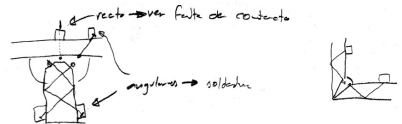 recto → ver falta de contacto
angulares → soldadura